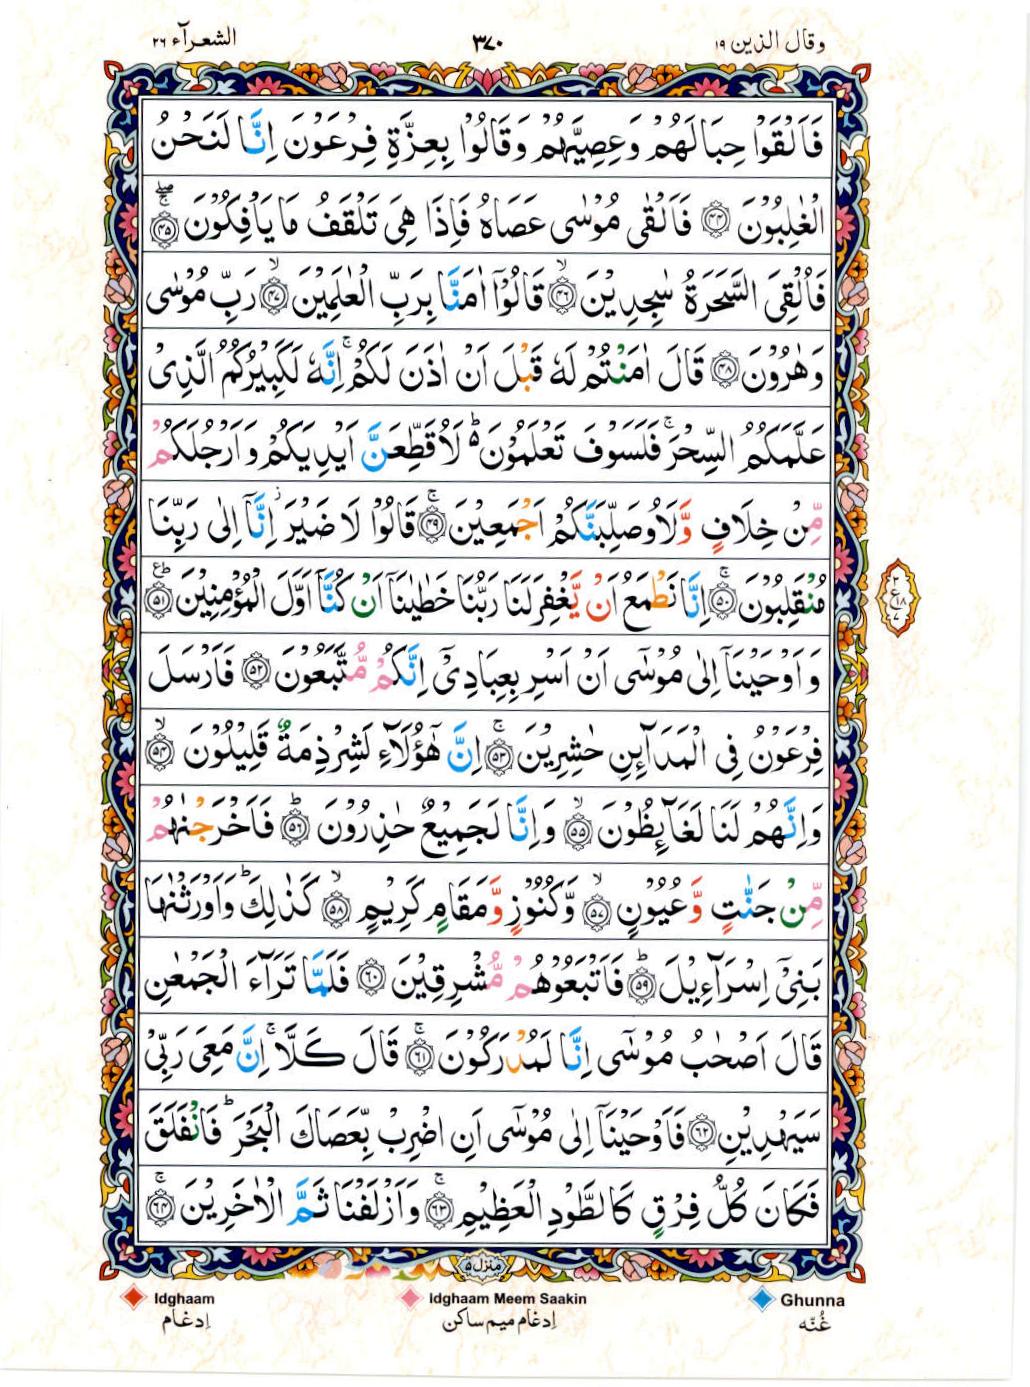 وقال الذين ١٩
٣٧٠
الشعرآء ٢٦
فَاَلْقَوْا حِبَالَهُمْ وَعِصِيَّهُمْ وَقَالُوْا بِعِزَّةِ فِرْعَوْنَ اِنَّا لَنَحْنُ
الْغٰلِبُوْنَ ﴿٤٤﴾ فَاَلْقٰى مُوْسٰى عَصَاهُ فَاِذَا هِىَ تَلْقَفُ مَا يَاْفِكُوْنَ ۖۚ ﴿٤٥﴾
فَاُلْقِىَ السَّحَرَةُ سٰجِدِيْنَ ۙ ﴿٤٦﴾ قَالُوْۤا اٰمَنَّا بِرَبِّ الْعٰلَمِيْنَ ۙ ﴿٤٧﴾ رَبِّ مُوْسٰى
وَهٰرُوْنَ ﴿٤٨﴾ قَالَ اٰمَنْتُمْ لَهٗ قَبْلَ اَنْ اٰذَنَ لَكُمْ ۚ اِنَّهٗ لَكَبِيْرُكُمُ الَّذِىْ
عَلَّمَكُمُ السِّحْرَ ۚ فَلَسَوْفَ تَعْلَمُوْنَ ؕ۬ لَاُقَطِّعَنَّ اَيْدِيَكُمْ وَاَرْجُلَكُمْ
مِّنْ خِلَافٍ وَّلَاُوصَلِّبَنَّكُمْ اَجْمَعِيْنَ ۚ ﴿٤٩﴾ قَالُوْا لَا ضَيْرَ ؗ اِنَّاۤ اِلٰى رَبِّنَا
مُنْقَلِبُوْنَ ۚ ﴿٥٠﴾ اِنَّا نَطْمَعُ اَنْ يَّغْفِرَ لَنَا رَبُّنَا خَطٰيٰنَاۤ اَنْ كُنَّاۤ اَوَّلَ الْمُؤْمِنِيْنَ ؕع ﴿٥١﴾
٢
ع ١٨
٧
وَاَوْحَيْنَاۤ اِلٰى مُوْسٰٓى اَنْ اَسْرِ بِعِبَادِىْۤ اِنَّكُمْ مُّتَّبَعُوْنَ ﴿٥٢﴾ فَاَرْسَلَ
فِرْعَوْنُ فِى الْمَدَآٮِٕنِ حٰشِرِيْنَ ۚ ﴿٥٣﴾ اِنَّ هٰٓؤُلَآءِ لَشِرْذِمَةٌ قَلِيْلُوْنَ ۙ ﴿٥٤﴾
وَاِنَّهُمْ لَنَا لَغَآٮِٕظُوْنَ ۙ ﴿٥٥﴾ وَاِنَّا لَجَمِيْعٌ حٰذِرُوْنَ ؕ ﴿٥٦﴾ فَاَخْرَجْنٰهُمْ
مِّنْ جَنّٰتٍ وَّعُيُوْنٍ ۙ ﴿٥٧﴾ وَّكُنُوْزٍ وَّمَقَامٍ كَرِيْمٍ ۙ ﴿٥٨﴾ كَذٰلِكَ ؕ وَاَوْرَثْنٰهَا
بَنِىْۤ اِسْرَآءِيْلَ ؕ ﴿٥٩﴾ فَاَتْبَعُوْهُمْ مُّشْرِقِيْنَ ﴿٦٠﴾ فَلَمَّا تَرَآءَ الْجَمْعٰنِ
قَالَ اَصْحٰبُ مُوْسٰٓى اِنَّا لَمُدْرَكُوْنَ ۚ ﴿٦١﴾ قَالَ كَلَّا ۚ اِنَّ مَعِىَ رَبِّىْ
سَيَهْدِيْنِ ﴿٦٢﴾ فَاَوْحَيْنَاۤ اِلٰى مُوْسٰٓى اَنِ اضْرِبْ بِّعَصَاكَ الْبَحْرَ ؕ فَانْفَلَقَ
فَكَانَ كُلُّ فِرْقٍ كَالطَّوْدِ الْعَظِيْمِ ۚ ﴿٦٣﴾ وَاَزْلَفْنَا ثَمَّ الْاٰخَرِيْنَ ۚ ﴿٦٤﴾
منزل ٥
Idghaam
Idghaam Meem Saakin
Ghunna
اِدغام
اِدغام ميم ساكن
غُنّه